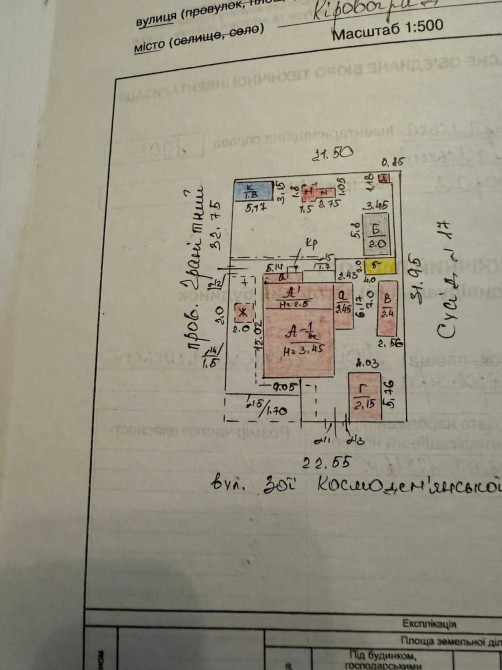 вулиця (провулок, площа
місто (селище, село) Кіровоград
Масштаб 1:500
21.50
0.85
К
1.8
3.15
5.17
1.8
1.5
2.75
1.05
1.8
3.45
Б
2.0
5.8
32.75
пров. Гранітний
Кр
5.14
1.7
2.43
2.0
4.0
31.95
Сусід. N 17
7
Ж
2.0
2.0
а
А'
H=2.5
H=3.45
12.02
а
2.45
6.17
7.0
В
2.4
2.56
9.05
4.03
Г
2.15
5.76
N5/1.70
N1
N3
22.55
вул. Зої Космодем'янської
Експлікація
Площа земельної діл
Під будинком,
господарськими